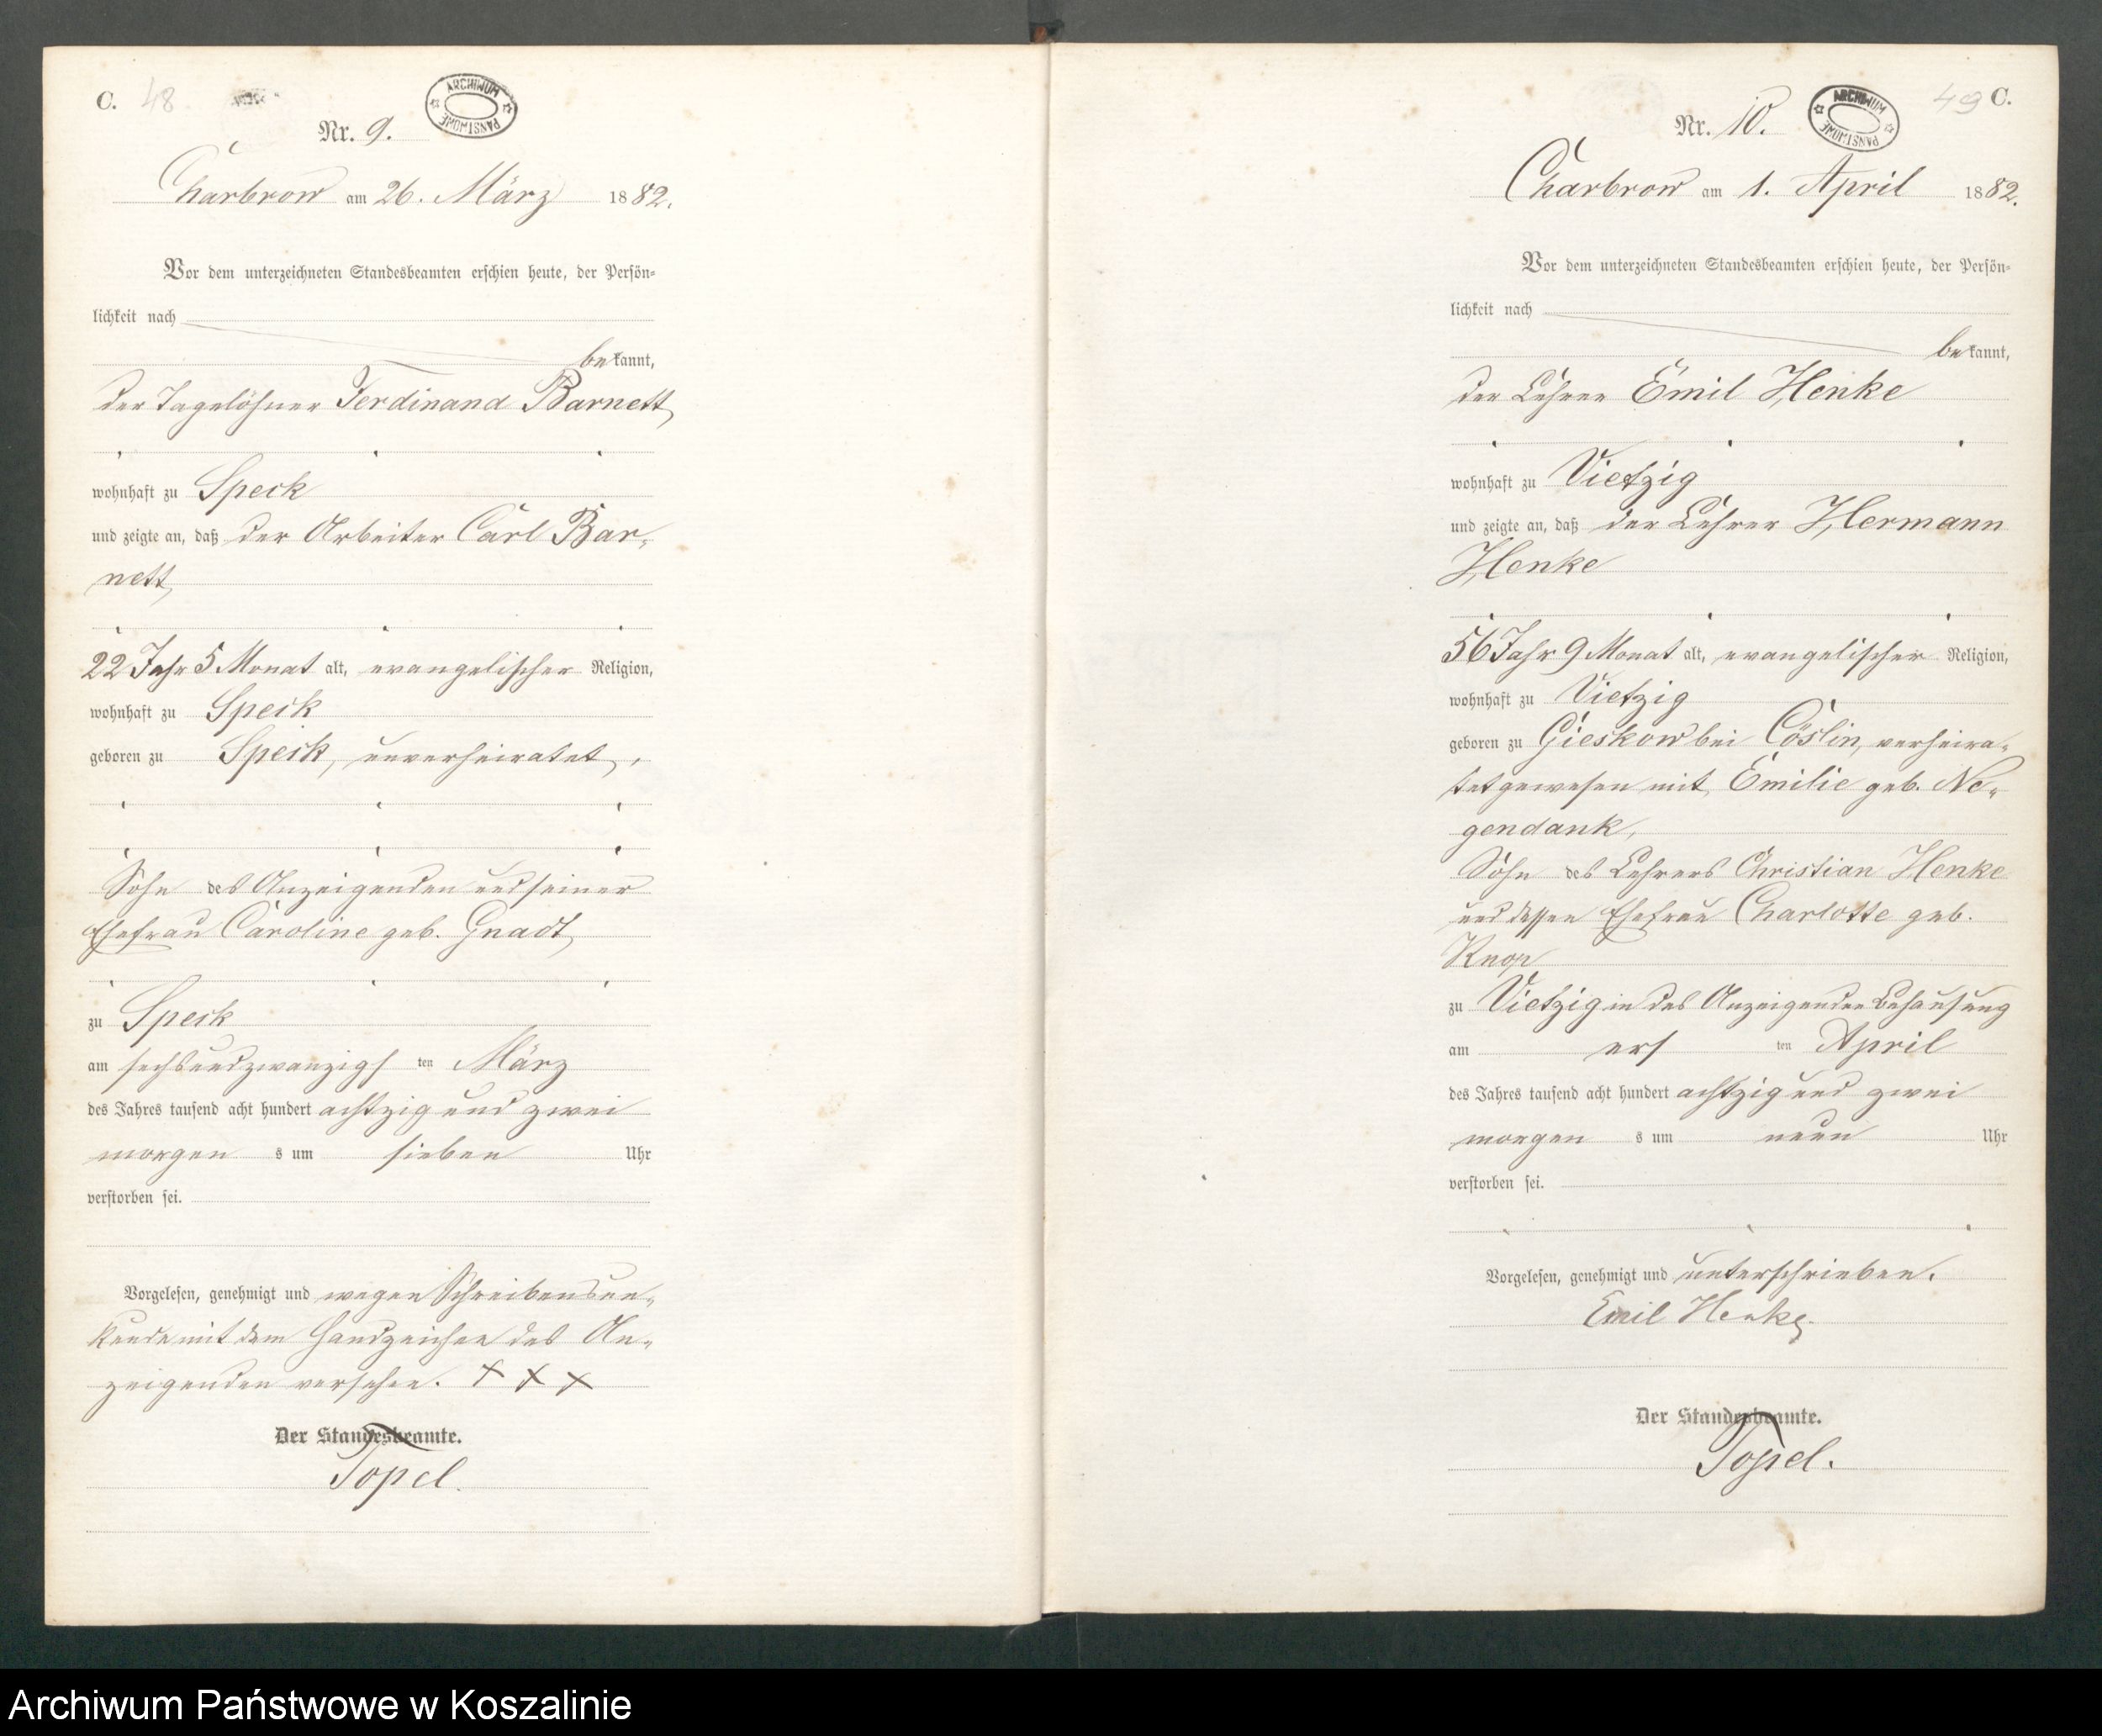 C. 48
ARCHIWUM PAŃSTWOWE
Nr. 9.
Charbrow am 26. März 1882.
Vor dem unterzeichneten Standesbeamten erschien heute, der Persön-
lichkeit nach
bekannt,
der Tagelöhner Ferdinand Barnett,
wohnhaft zu Speck
und zeigte an, daß der Arbeiter Carl Bar-
nett,
22 Jahr 5 Monat alt, evangelischer Religion,
wohnhaft zu Speck
geboren zu Speck, unverheiratet,
Sohn des Anzeigenden und seiner
Ehefrau Caroline geb. Gnadt,
zu Speck
am sechsundzwanzigsten März
des Jahres tausend acht hundert achtzig und zwei
morgens um sieben Uhr
verstorben sei.
Vorgelesen, genehmigt und wegen Schreibensun-
kunde mit dem Handzeichen des An-
zeigenden versehen. + + +
Der Standesbeamte.
Topel.
49 C.
ARCHIWUM PAŃSTWOWE
Nr. 10.
Charbrow am 1. April 1882.
Vor dem unterzeichneten Standesbeamten erschien heute, der Persön-
lichkeit nach
bekannt,
der Lehrer Emil Henke
wohnhaft zu Vietzig
und zeigte an, daß der Lehrer Hermann
Henke
56 Jahr 9 Monat alt, evangelischer Religion,
wohnhaft zu Vietzig
geboren zu Gieskow bei Cöslin, verheira-
tet gewesen mit Emilie geb. Ne-
gendank,
Sohn des Lehrers Christian Henke
und dessen Ehefrau Charlotte geb.
Knop
zu Vietzig in des Anzeigenden Behausung
am ersten April
des Jahres tausend acht hundert achtzig und zwei
morgens um neun Uhr
verstorben sei.
Vorgelesen, genehmigt und unterschrieben.
Emil Henke.
Der Standesbeamte.
Topel.
Archiwum Państwowe w Koszalinie